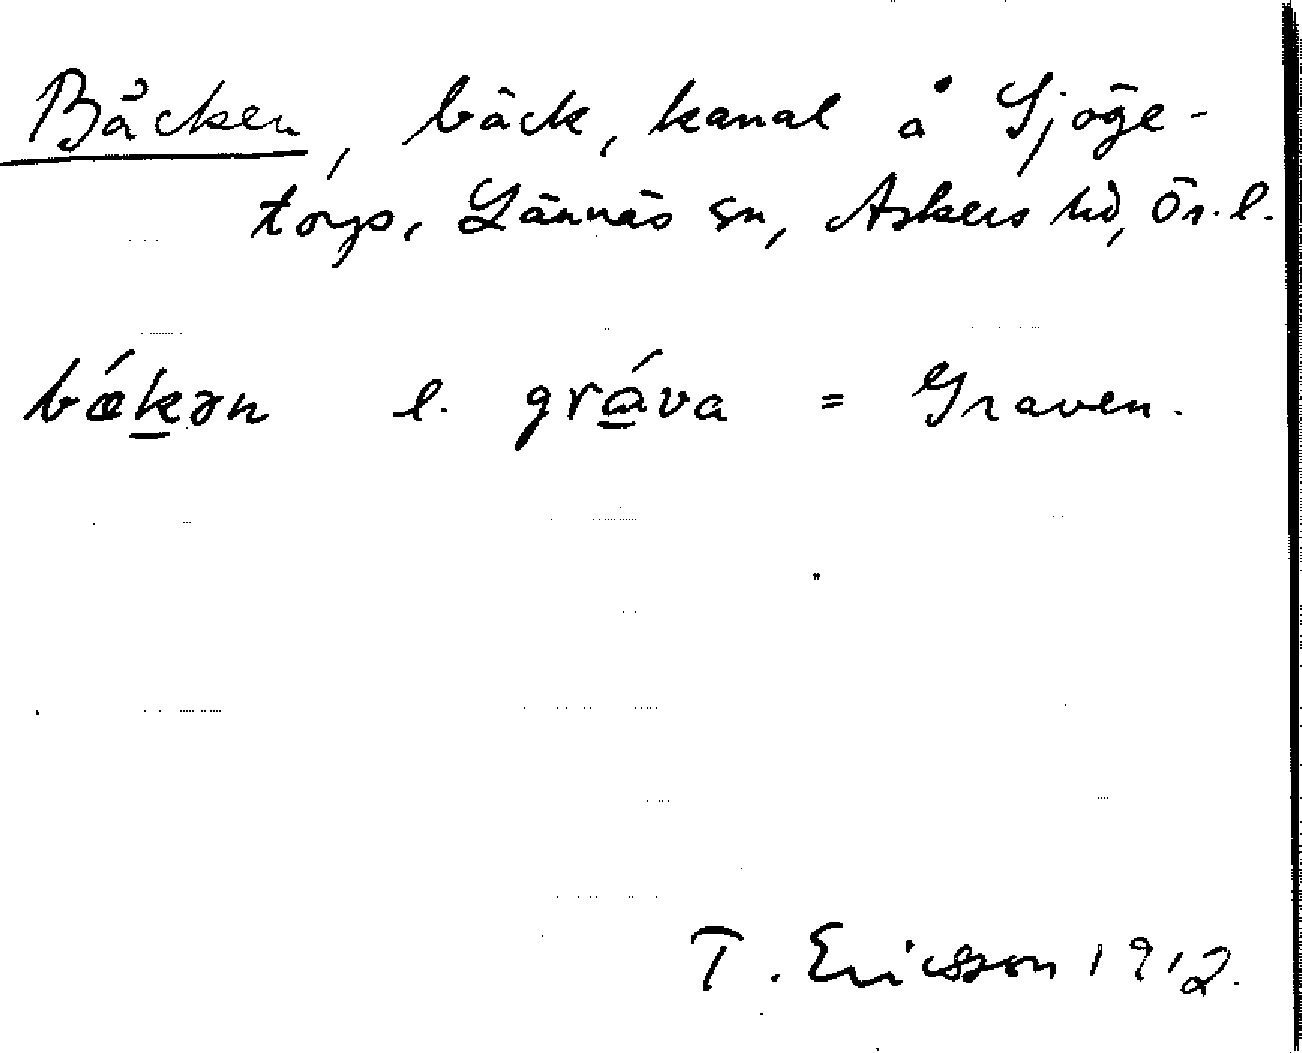 Bäcken, bäck, kanal å Sjöge-
torps, Lännäs sn, Askers hd, Ör. l.
bǽkən l. gráva = Graven.
T. Ericsson 1912.